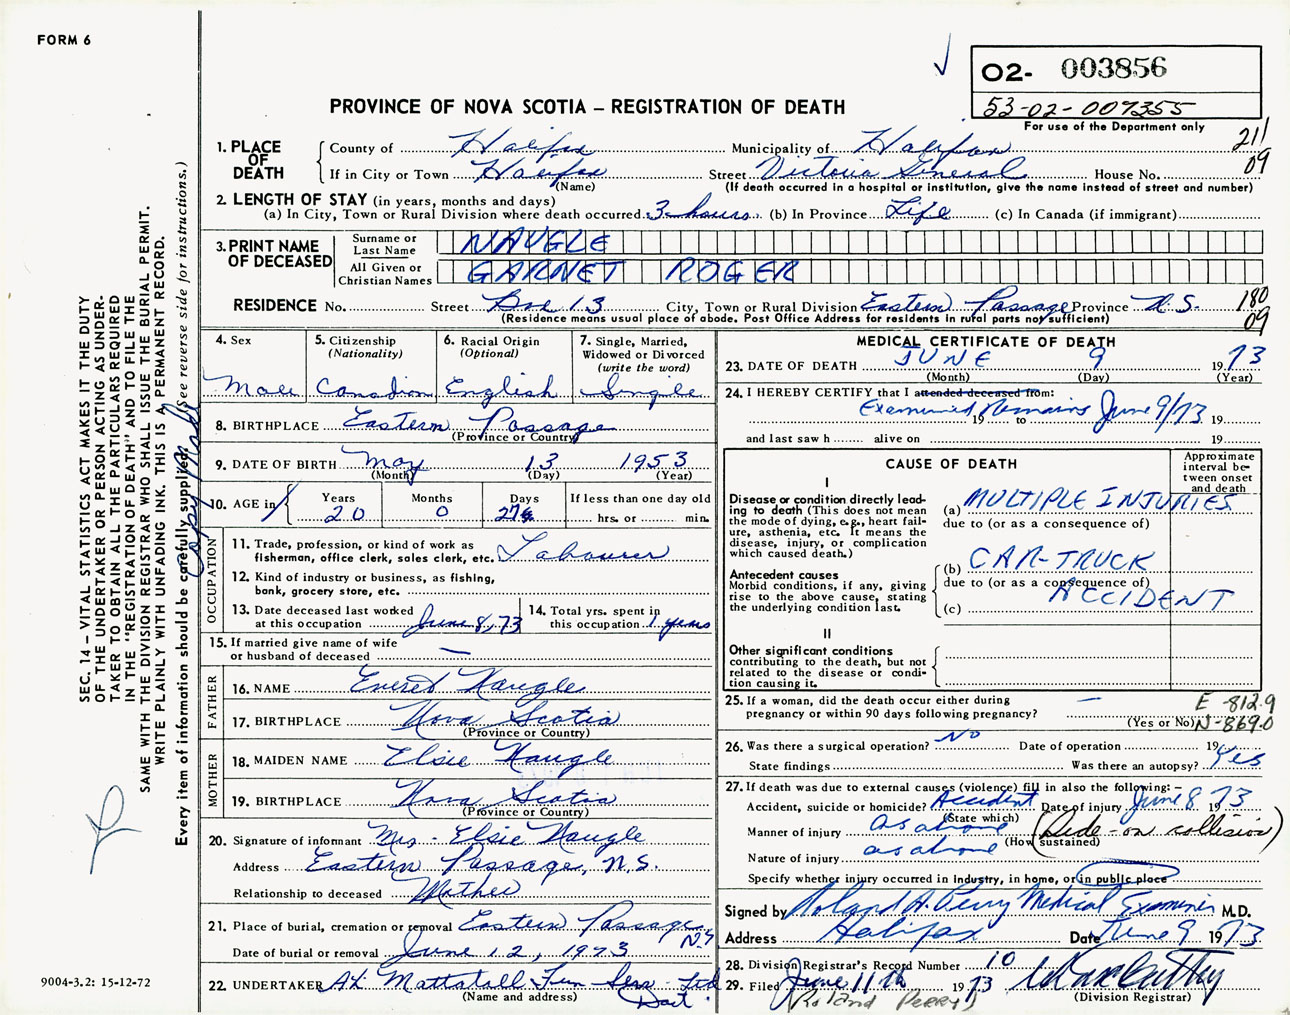 FORM 6
02- 003856
53-02-007355
For use of the Department only
PROVINCE OF NOVA SCOTIA – REGISTRATION OF DEATH
1. PLACE OF DEATH
County of Halifax Municipality of Halifax 211
If in City or Town Halifax Street Victoria General House No. 09
(Name) (If death occurred in a hospital or institution, give the name instead of street and number)
2. LENGTH OF STAY (in years, months and days)
(a) In City, Town or Rural Division where death occurred 3 hours (b) In Province Life (c) In Canada (if immigrant)
3. PRINT NAME OF DECEASED
Surname or Last Name NAUGLE
All Given or Christian Names GARNET ROGER
RESIDENCE No. Street Box 13 City, Town or Rural Division Eastern Passage Province N.S. 180
(Residence means usual place of abode. Post Office Address for residents in rural parts not sufficient) 09
4. Sex
Male
5. Citizenship
(Nationality)
Canadian
6. Racial Origin
(Optional)
English
7. Single, Married,
Widowed or Divorced
(write the word)
Single
8. BIRTHPLACE Eastern Passage
(Province or Country)
9. DATE OF BIRTH May 13 1953
(Month) (Day) (Year)
10. AGE in
Years Months Days If less than one day old
20 0 27 hrs. or min.
OCCUPATION
11. Trade, profession, or kind of work as
fisherman, office clerk, sales clerk, etc. Labourer
12. Kind of industry or business, as fishing,
bank, grocery store, etc.
13. Date deceased last worked
at this occupation June 8, 73
14. Total yrs. spent in
this occupation 1 years
15. If married give name of wife
or husband of deceased —
FATHER
16. NAME Everet Naugle
17. BIRTHPLACE Nova Scotia
(Province or Country)
MOTHER
18. MAIDEN NAME Elsie Naugle
19. BIRTHPLACE Nova Scotia
(Province or Country)
20. Signature of informant Mrs. Elsie Naugle
Address Eastern Passage, N.S.
Relationship to deceased Mother
21. Place of burial, cremation or removal Eastern Passage N.S
Date of burial or removal June 12, 1973
22. UNDERTAKER A.L. Mattatall Fun Ser Ltd
(Name and address) Dart.
MEDICAL CERTIFICATE OF DEATH
23. DATE OF DEATH JUNE 9 1973
(Month) (Day) (Year)
24. I HEREBY CERTIFY that I attended deceased from:
Examined Remains June 9/73
19 to 19
and last saw h alive on 19
CAUSE OF DEATH
Approximate
interval be-
tween onset
and death
I
Disease or condition directly lead-
ing to death (This does not mean
the mode of dying, e.g., heart fail-
ure, asthenia, etc. It means the
disease, injury, or complication
which caused death.)
(a) MULTIPLE INJURIES
due to (or as a consequence of)
Antecedent causes
Morbid conditions, if any, giving
rise to the above cause, stating
the underlying condition last.
(b) CAR-TRUCK
due to (or as a consequence of)
(c) ACCIDENT
II
Other significant conditions
contributing to the death, but not
related to the disease or condi-
tion causing it.
25. If a woman, did the death occur either during
pregnancy or within 90 days following pregnancy? —
(Yes or No)
E-812.9
N-869.0
26. Was there a surgical operation? No Date of operation 19
State findings Was there an autopsy? Yes
27. If death was due to external causes (violence) fill in also the following:-
Accident, suicide or homicide? Accident Date of injury June 8 1973
(State which)
Manner of injury as above (Side-on collision)
(How sustained)
Nature of injury as above
Specify whether injury occurred in industry, in home, or in public place
Signed by Roland H. Perry Medical Examiner M.D.
Address Halifax Date June 9 1973
28. Division Registrar's Record Number 10
29. Filed June 11th 1973
(Roland Perry)
(Division Registrar)
SEC. 14 – VITAL STATISTICS ACT MAKES IT THE DUTY
OF THE UNDERTAKER OR PERSON ACTING AS UNDER-
TAKER TO OBTAIN ALL THE PARTICULARS REQUIRED
IN THE "REGISTRATION OF DEATH" AND TO FILE THE
SAME WITH THE DIVISION REGISTRAR WHO SHALL ISSUE THE BURIAL PERMIT.
WRITE PLAINLY WITH UNFADING INK. THIS IS A PERMANENT RECORD.
Every item of information should be carefully supplied. (See reverse side for instructions.)
9004-3.2: 15-12-72